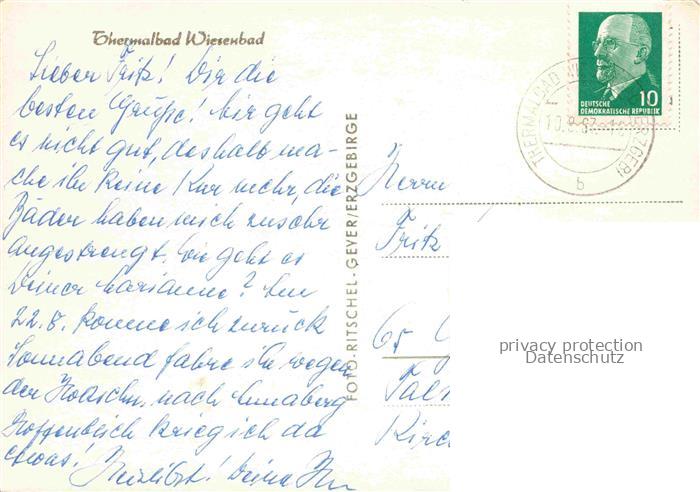 Thermalbad Wiesenbad
Lieber Fritz! Dir die
besten Grüße! Mir geht
es nicht gut, deshalb ma-
che ich keine Kur mehr, die
Bäder haben mich zu sehr
angestrengt. Wie geht es
Deiner Marianne? Am
22.8. komme ich zurück
Sonnabend fahre ich wegen
der nach Annaberg
Hoffentlich krieg ich da
etwas!
Herzlichst! Deine
FOTO-RITSCHEL-GEYER/ERZGEBIRGE
DEUTSCHE
DEMOKRATISCHE REPUBLIK
10
THERMALBAD
(ERZGEB)
10.8.
b
Herrn
Fritz
65
privacy protection
Datenschutz